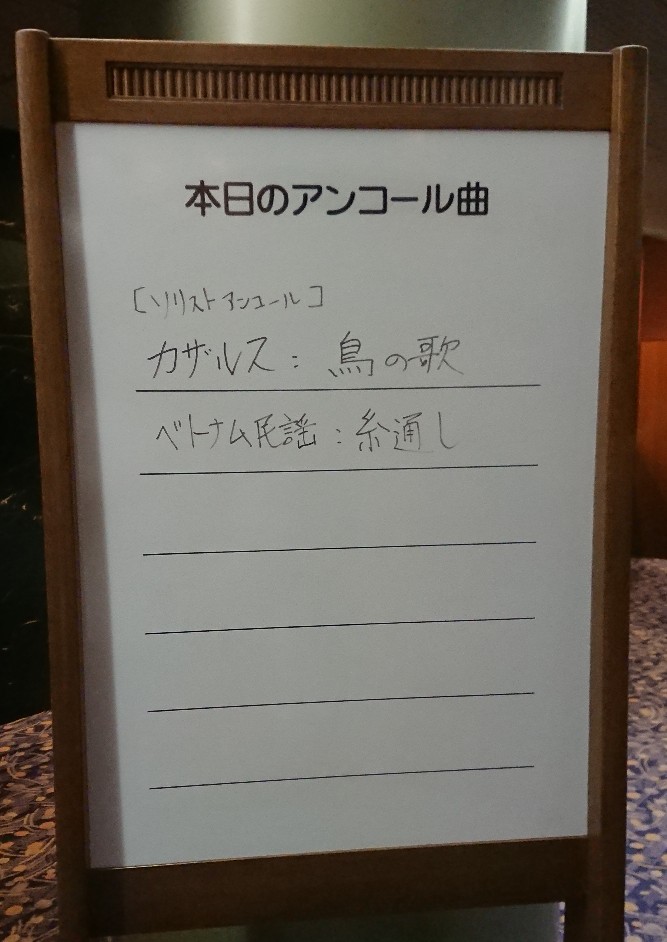 本日のアンコール曲
[ソリストアンコール]
カザルス：鳥の歌
ベトナム民謡：糸通し